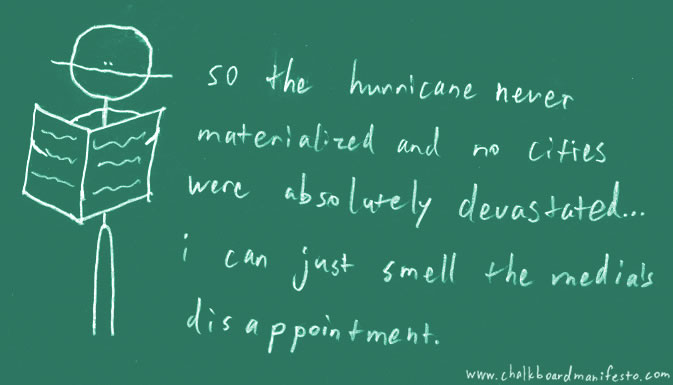 so the hurricane never
materialized and no cities
were absolutely devastated...
i can just smell the media's
disappointment.
www.chalkboardmanifesto.com